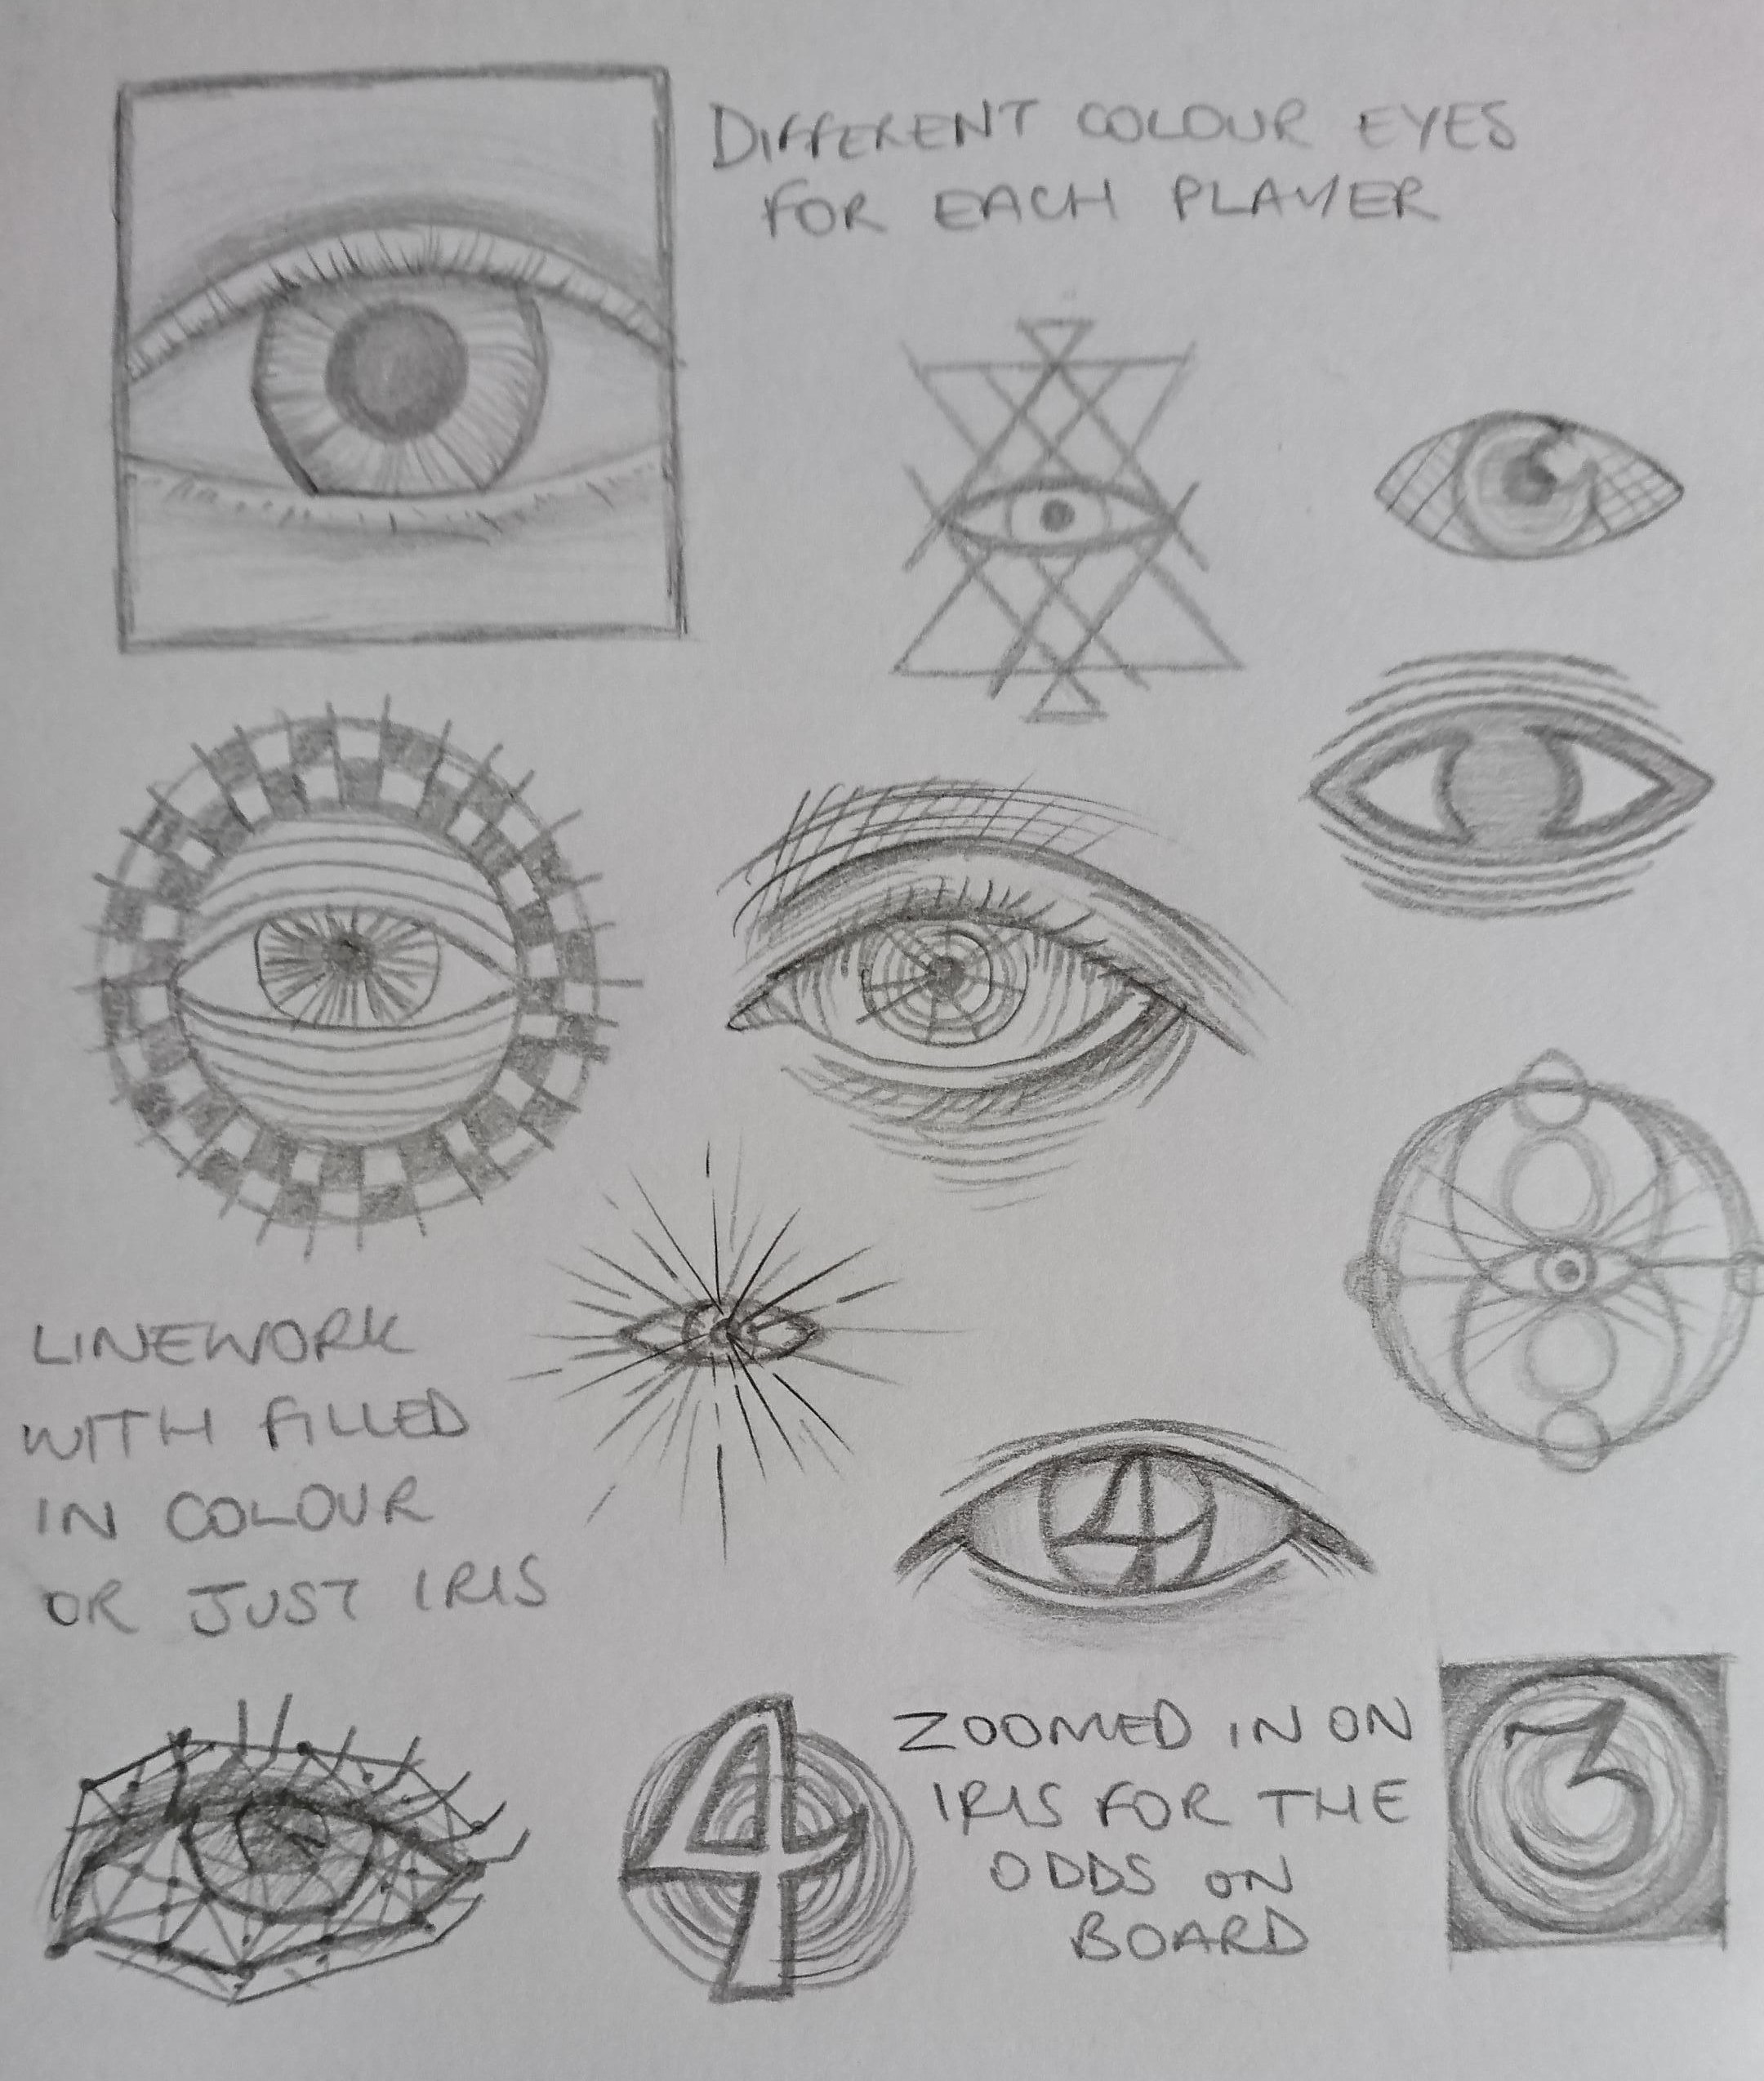 DIFFERENT COLOUR EYES
FOR EACH PLAYER
LINEWORK
WITH FILLED
IN COLOUR
OR JUST IRIS
4
4
ZOOMED IN ON
IRIS FOR THE
ODDS ON
BOARD
3